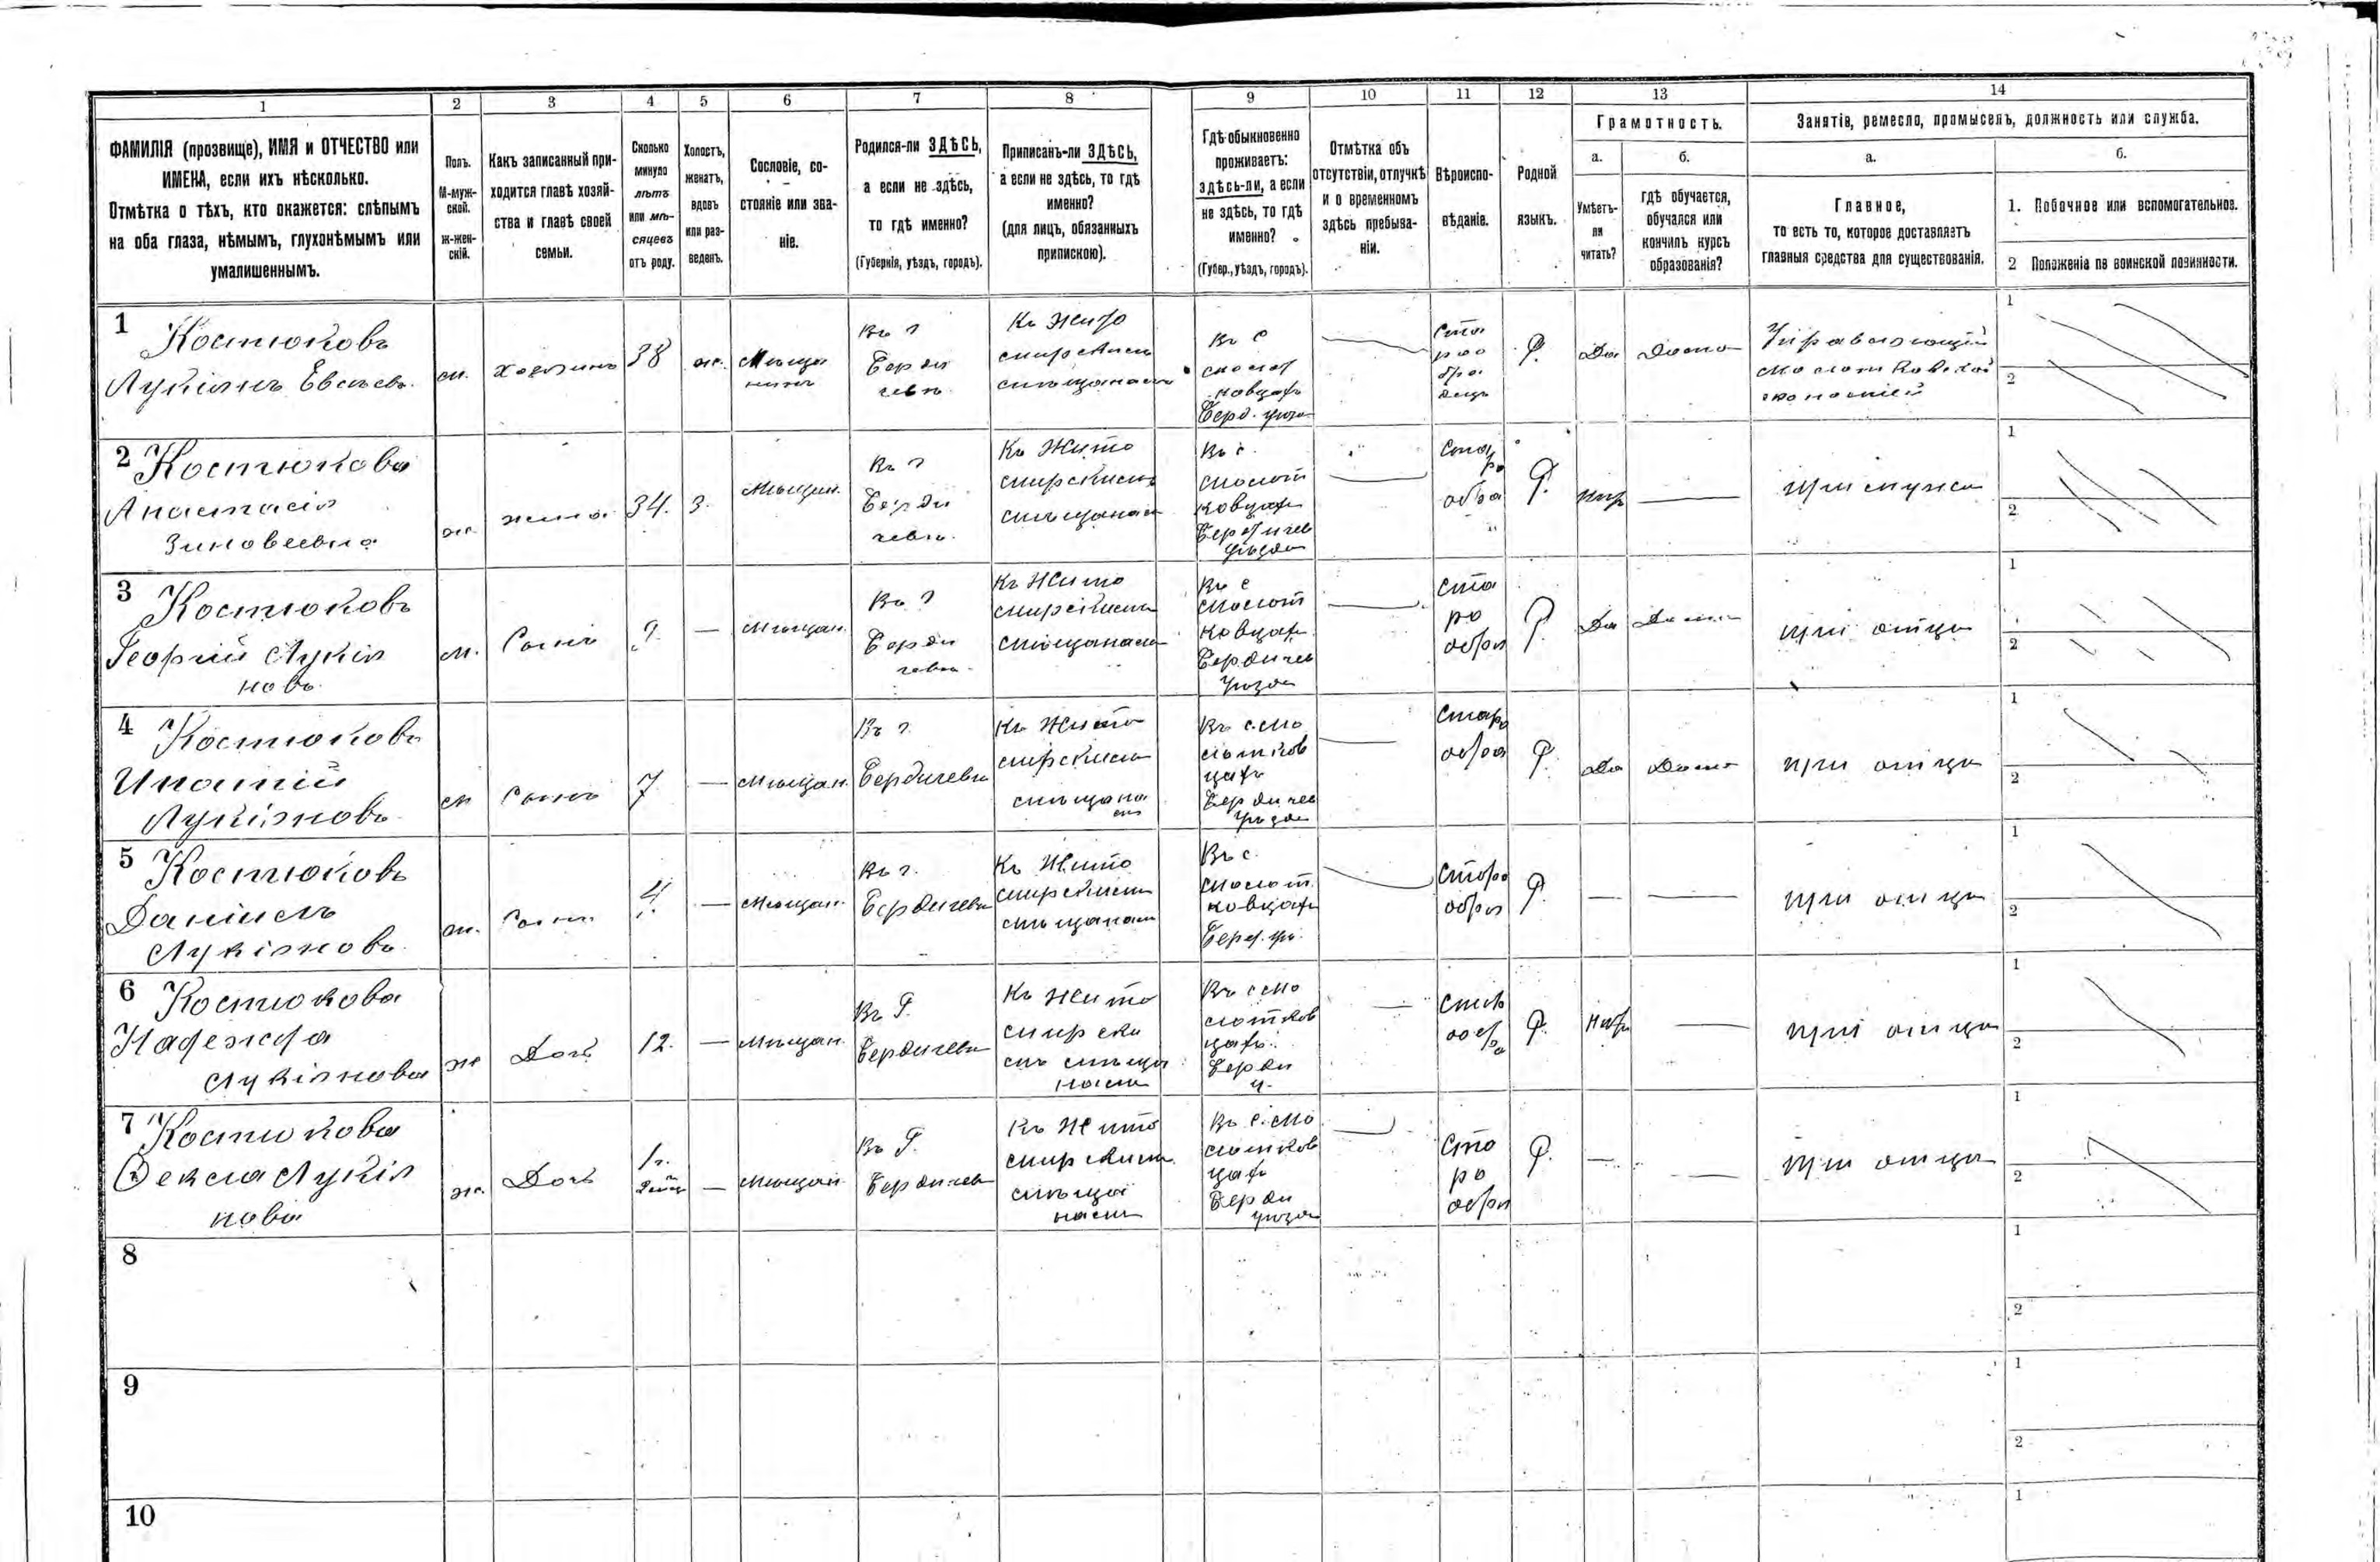 1 2 3 4 5 6 7 8 9 10 11 12 13 14
ФАМИЛІЯ (прозвище), ИМЯ и ОТЧЕСТВО или
ИМЕНА, если ихъ нѣсколько.
Отмѣтка о тѣхъ, кто окажется: слѣпымъ
на оба глаза, нѣмымъ, глухонѣмымъ или
умалишеннымъ.
Полъ.
М-муж-
ской.
ж-жен-
скій.
Какъ записанный при-
ходится главѣ хозяй-
ства и главѣ своей
семьи.
Сколько
минуло
лѣтъ
или мѣ-
сяцевъ
отъ роду.
Холостъ,
женатъ,
вдовъ
или раз-
веденъ.
Сословіе, со-
стояніе или зва-
ніе.
Родился-ли ЗДѢСЬ,
а если не здѣсь,
то гдѣ именно?
(Губернія, уѣздъ, городъ).
Приписанъ-ли ЗДѢСЬ,
а если не здѣсь, то гдѣ
именно?
(для лицъ, обязанныхъ
припискою).
Гдѣ обыкновенно
проживаетъ:
здѣсь-ли, а если
не здѣсь, то гдѣ
именно?
(Губер., уѣздъ, городъ).
Отмѣтка объ
отсутствіи, отлучкѣ
и о временномъ
здѣсь пребыва-
ніи.
Вѣроиспо-
вѣданіе.
Родной
языкъ.
Грамотность.
а.
Умѣетъ-
ли
читать?
б.
гдѣ обучается,
обучался или
кончилъ курсъ
образованія?
Занятіе, ремесло, промыселъ, должность или служба.
а.
Главное,
то есть то, которое доставляетъ
главныя средства для существованія.
б.
1. Побочное или вспомогательное.
2 Положеніе по воинской повинности.
1
Костюковъ
Лукіянъ Евсѣевъ.
м.
хозяинъ
38
ж.
Мѣща
нинъ
Въ г
Берди
чевѣ
Къ Жито
мирскимъ
мѣщанамъ
Въ с
Молот
ковцахъ
Берд. уѣзда
Ста
роо
бря
децъ
Р.
Да
Дома
Управляющій
Молотковской
экономіей
1
2
2 Костюкова
Анастасія
Зиновеевна
ж.
жена
34.
З.
Мѣщан.
Въ г
Берди
чевѣ.
Къ Жито
мирскимъ
мѣщанам
Въ с.
Молот
ковцахъ
Бердичев
уѣзда
Старо
обра
Р.
Нѣтъ
при мужѣ
1
2
3
Костюковъ
Георгій Лукія
новъ.
м.
Сынъ
9.
Мѣщан.
Въ г
Берди
чевѣ.
Къ Жито
мирскимъ
мѣщанамъ
Въ с
Молот
ковцахъ
Бердичев
уѣзда
Ста
ро
обря
Р.
Да
Дома
при отцѣ
1
2
4
Костюковъ
Ипатій
Лукіяновъ
м
Сынъ
7
Мѣщан.
Въ г.
Бердичевѣ
Къ Жито
мирскимъ
мѣщана
мъ
Въ с. Мо
лотков
цахъ
Бердичев
уѣзда
Старо
обря
Р.
Да
Дома
при отцѣ
1
2
5
Костюковъ
Даніилъ
Лукіяновъ.
м.
Сынъ
4
Мѣщан.
Въ г.
Бердичевѣ
Къ Жито
мирскимъ
мѣщанам
Въ с.
Молот
ковцахъ
Берд. уѣ.
Старо
обря
Р.
при отцѣ
1
2
6
Костюкова
Надежда
Лукіянова
ж
Дочь
12.
Мѣщан.
Въ Г.
Бердичевѣ
Къ Жито
мирски
мъ мѣща
намъ
Въ с Мо
лотков
цахъ.
Берди
у.
Р.
Нѣтъ
при отцѣ
1
2
7
Костюкова
Фекла Лукія
нова
ж.
Дочь
1 г.
Мѣщан
Въ Г.
Бердичев
Къ Жито
мирским
мѣща
намъ
Въ с. Мо
лотков
цахъ
Берди
уѣзда
Ста
ро
обря
Р.
при отцѣ
1
2
8
1
2
9
1
2
10
1